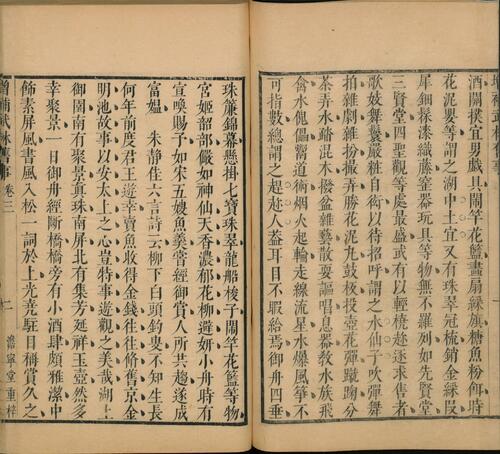 酒關撲宜男戲具鬧竿花籃畫扇綵旗糖魚粉餌時
花泥嬰等謂之湖中土宜又有珠翠冠梳銷金綵段
犀鈿髹漆織藤窰器玩具等物無不羅列如先賢堂
三賢堂四聖觀等處最盛或有以輕橈趁逐求售者
歌妓舞鬟嚴粧自衒以待招呼謂之水仙子吹彈舞
拍雜劇雜扮撮弄勝花泥丸鼓板投壺花彈蹴鞠分
茶弄水踏混木撥盆雜藝散耍謳唱息器教水族飛
禽水傀儡鬻道術烟火起輪走線流星水爆風箏不
可指數總謂之趕趁人葢耳目不暇給焉御舟四垂
珠簾錦幕懸掛七寶珠翠龍船梭子鬧竿花籃等物
宮姬韶部儼如神仙天香濃郁花柳避妍小舟時有
宣喚賜予如宋五嫂魚羹嘗經御賞人所共趨遂成
富媼 朱靜佳六言詩云柳下白頭釣叟不知生長
何年前度君王遊幸賣魚收得金錢往往修舊京金
明池故事以安太上之心豈特事遊觀之美哉湖上
御園南有聚景真珠南屏北有集芳延祥玉壺然多
幸聚景一日御舟經斷橋橋旁有小酒肆頗雅潔中
飾素屏風書風入松一詞於上光堯駐目稱賞久之
增補武林舊事 卷三 二 澹寧堂重梓